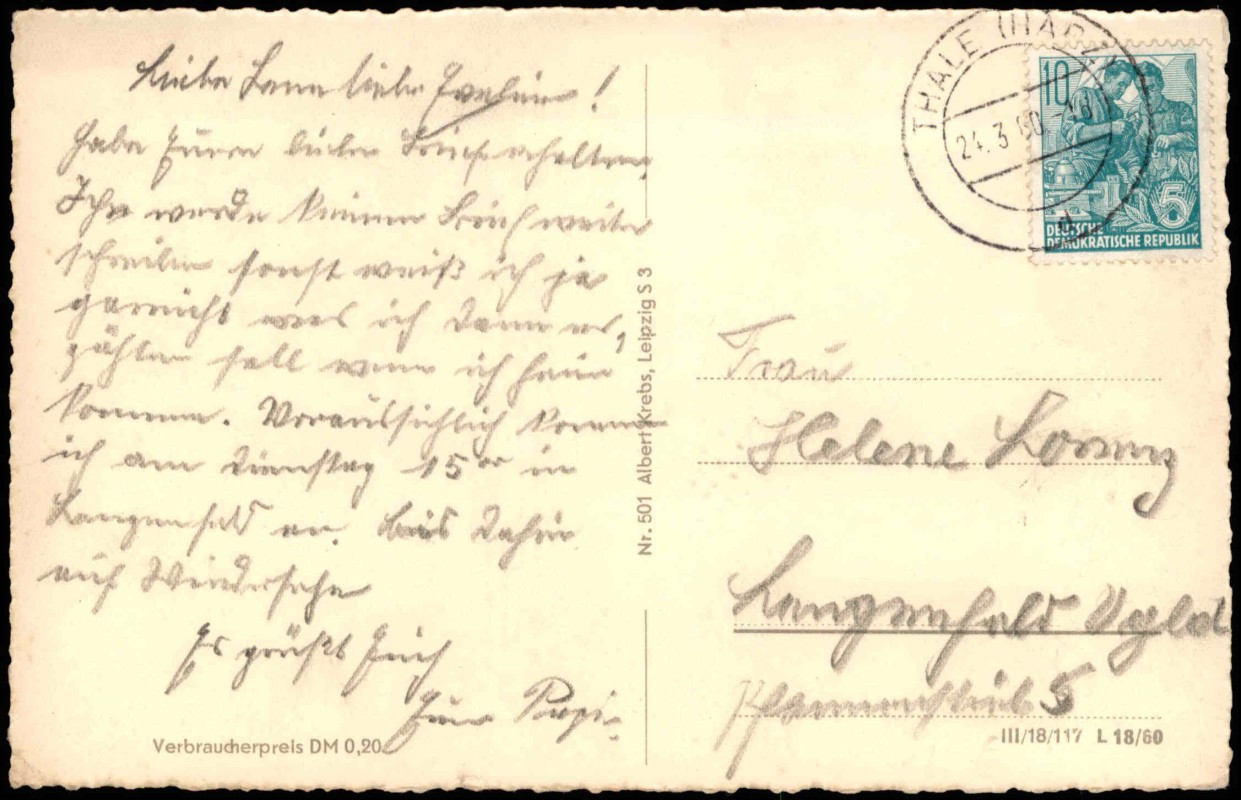 Liebe Lene liebe Evelin!
Habe Euren lieben Brief erhalten,
Ich werde keinen Brief weiter
schreiben sonst weiß ich ja
garnicht was ich dann er,
zählen soll wenn ich heim
komme. Voraussichtlich komme
ich am Dienstag 15 00 in
Langenfeld an. Bis dahin
auf Wiedersehn
Es grüßt Euch
Euer Papi.
Verbraucherpreis DM 0,20
Nr. 501 Albert Krebs, Leipzig S 3
THALE (HARZ)
24. 3. 60.-18
d
10
5
DEUTSCHE
DEMOKRATISCHE REPUBLIK
Frau
Helene
Langenfeld Vgtld
5
III/18/117 L 18/60